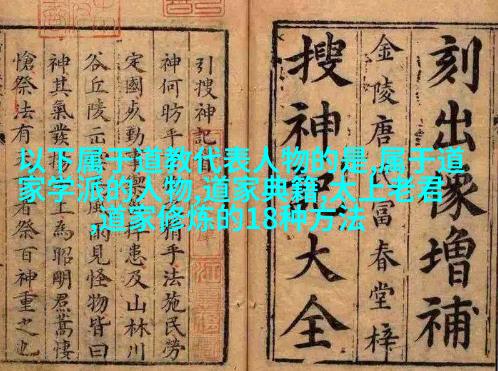 以下属于道教代表人物的是,属于道
家学派的人物,道家典籍,太上老君
,道家修炼的18种方法
刻出像增補
搜神記大全
金陵唐氏富春堂梓
引搜神記
神何昉乎法施民勞
定國以勤事捍患及山林川
谷丘陵雨見怪物皆曰
神其氣發揚上為昭明焄蒿悽
愴祭法有祭百神重之也